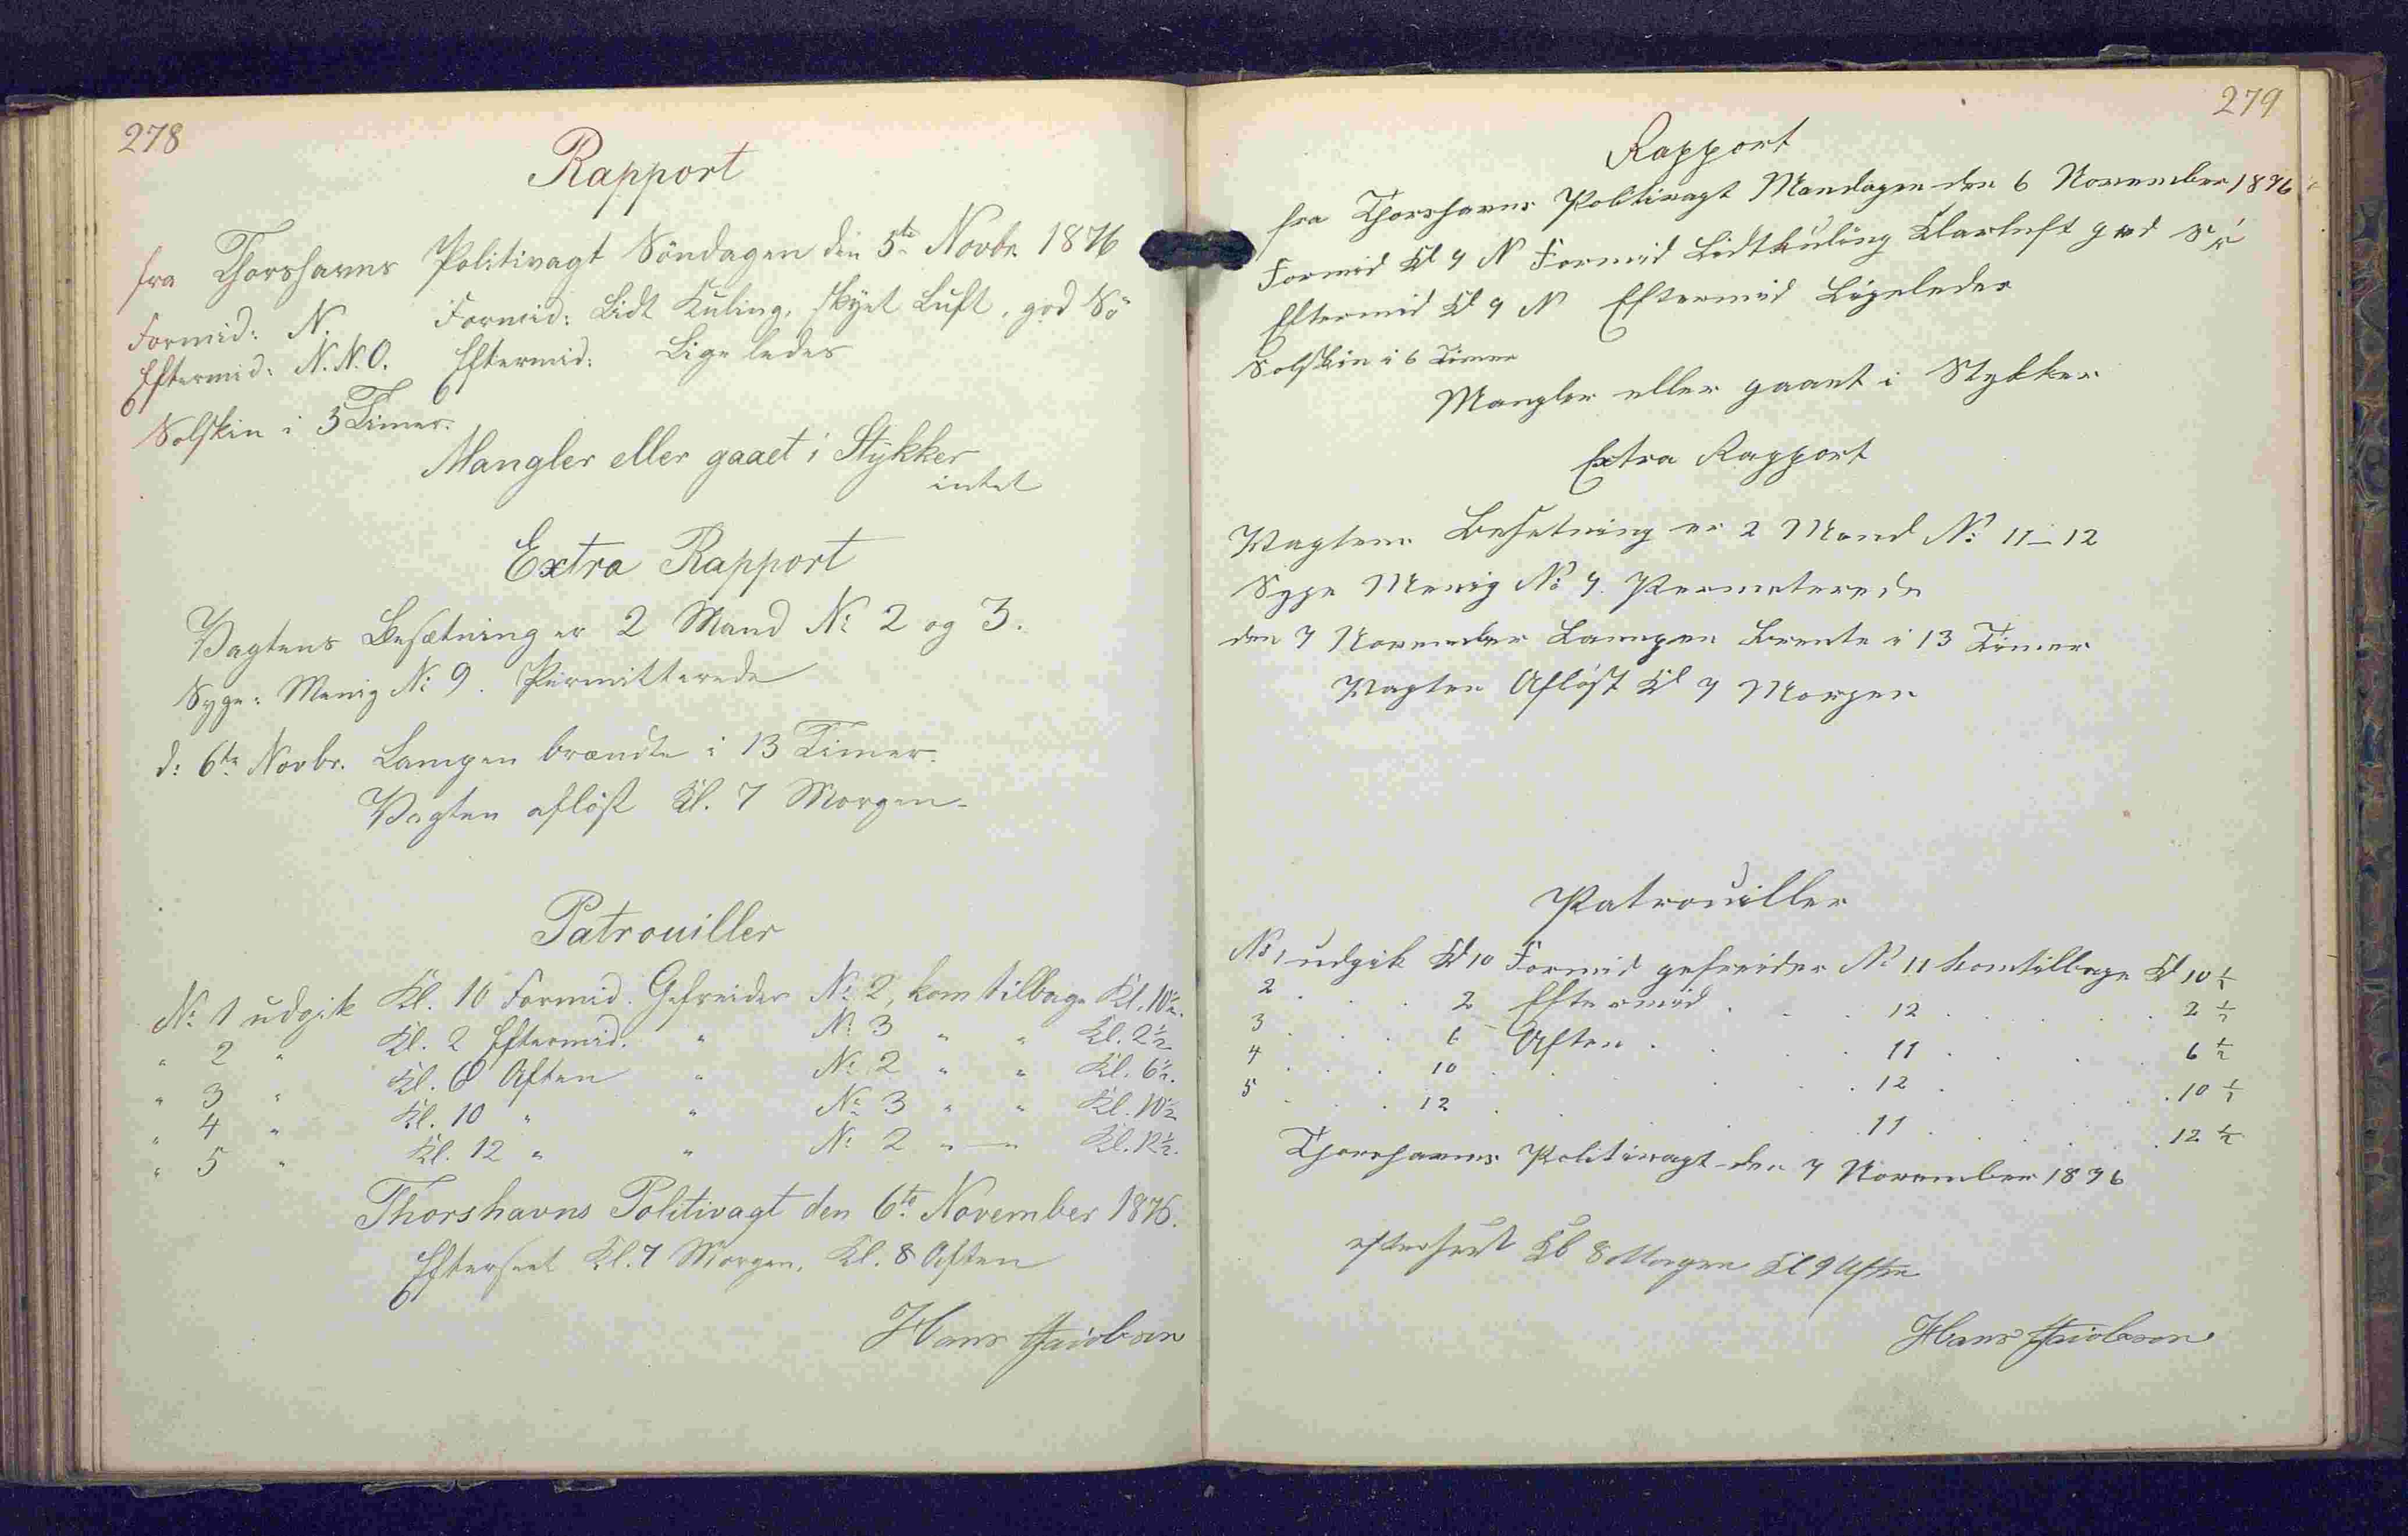 278
Rapport
fra Thorshavns Politivagt Söndagen den 5te Novbr. 1876
Formid: N. Formid: Lidt Kuling, skyet Luft, god Sö
Eftermid: N.N.O. Eftermid: Ligeledes
Solskin i 3 Timer.
Mangler eller gaaet i Stykker
intet
Extra Rapport
Vagtens Besætning er 2 Mand No 2 og 3.
Syge: Menig No 9. Permitterede
d: 6te Novbr. Lampen brændte i 13 Timer.
Vagten aflöst Kl. 7 Morgen.
Patrouiller
No 1 udgik Kl. 10 Formid. Gefreider No 2, kom tilbage Kl. 10½.
" 2 " Kl. 2 Eftermid. " No 3 " " Kl. 2½
" 3 " Kl. 6 Aften " No 2 " " Kl. 6½.
" 4 " Kl. 10 " " No 3 " " Kl. 10½
" 5 " Kl. 12 " " No 2 " " Kl. 12½.
Thorshavns Politivagt den 6te November 1876.
Efterseet Kl. 7 Morgen, Kl. 8 Aften
Hans Jacobsen
279
Rapport
fra Thorshavns Politivagt Mandagen den 6 November 1876
Formid Kl 9 N Formid Lidt kuling Klarluft god Sö
Eftermid Kl 9 N Eftermid Ligeledes
Solskin i 6 Timer
Mangler eller gaaet i Stykker
Extra Rapport
Vagtens Besetning er 2 Mand No 11-12
Syge Menig No 9. Permeterede
den 7 November Lampen brente i 13 Timer
Vagten Aflöst Kl 7 Morgen
Patrouiller
No 1 udgik Kl 10 Formid gefreider No 11 kom tilbage Kl 10½
2 . . . 2 Eftermid . . . 12 . . . . 2½
3 . . . 6 Aften . . . 11 . . . 6½
4 . . . 10 . . . 12 . . . 10½
5 . . . 12 . . . 11 . . . 12½
Thorshavns Politivagt den 7 November 1876
efterseet Kl 8 Morgen Kl 9 Aften
Hans Jacobsen